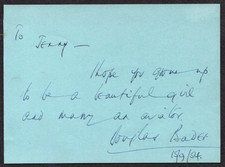 To Jenny —
I hope you grow up
to be a beautiful girl
and marry an aviator.
Douglas Bader